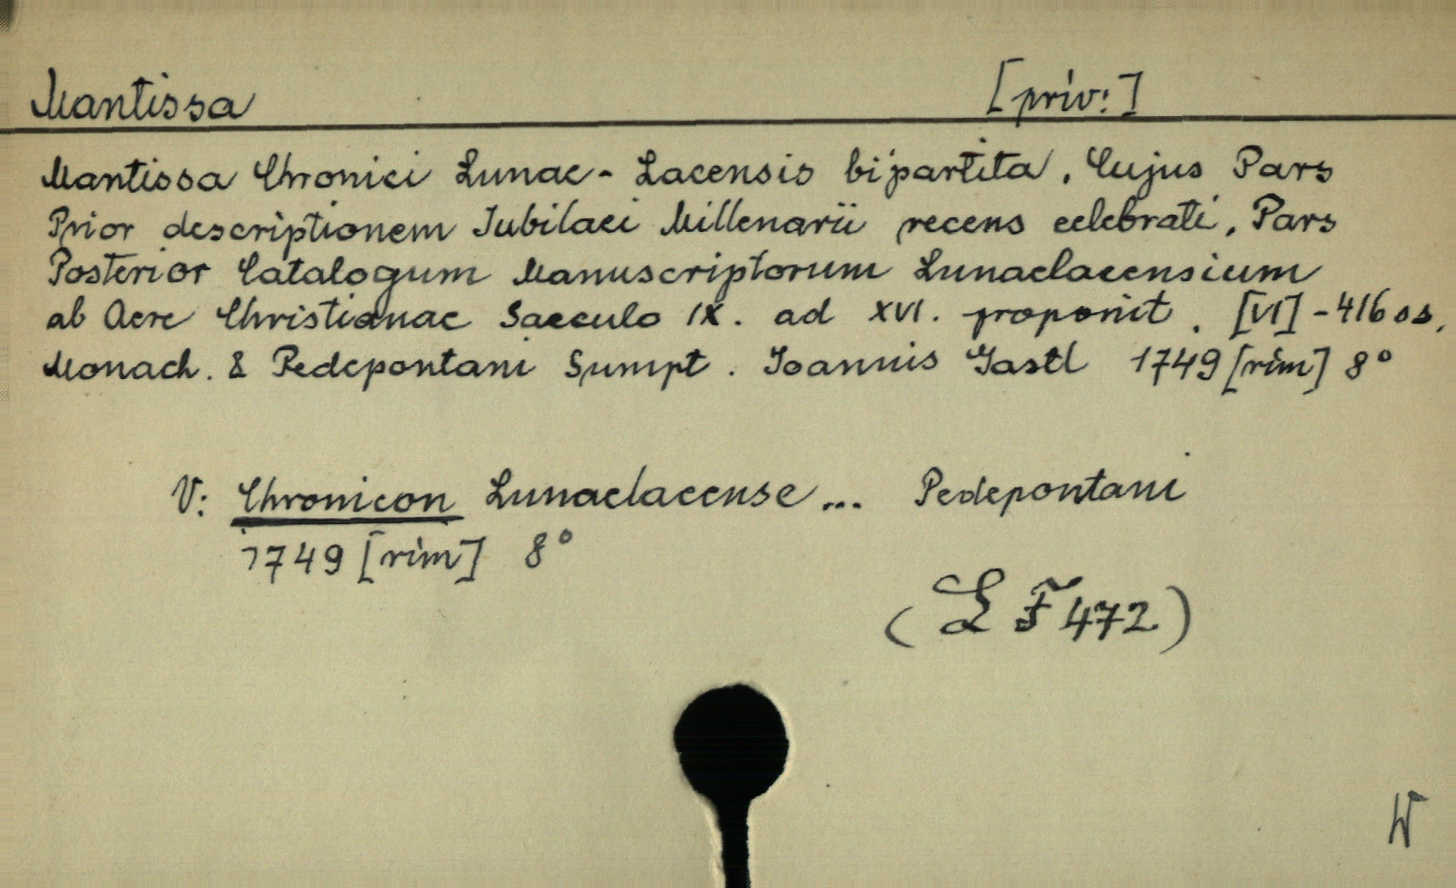 Mantissa [priv:]
Mantissa Chronici Lunae-Lacensis bipartita, Cujus Pars
Prior descriptionem Iubilaei Millenarii recens celebrati, Pars
Posterior Catalogum Manuscriptorum Lunaelacensium
ab Aere Christianae Saeculo IX. ad XVI. proponit. [VI]-416 os,
Monach. & Pedepontani Sumpt. Ioannis Gastl 1749 [rim] 8°
V: Chronicon Lunaelacense... Pedepontani
1749 [rim] 8°
(L F 472)
W